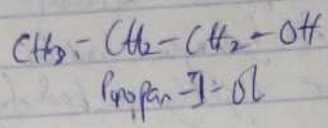 CH3 - CH2 - CH2 - OH
Propan-1-ol